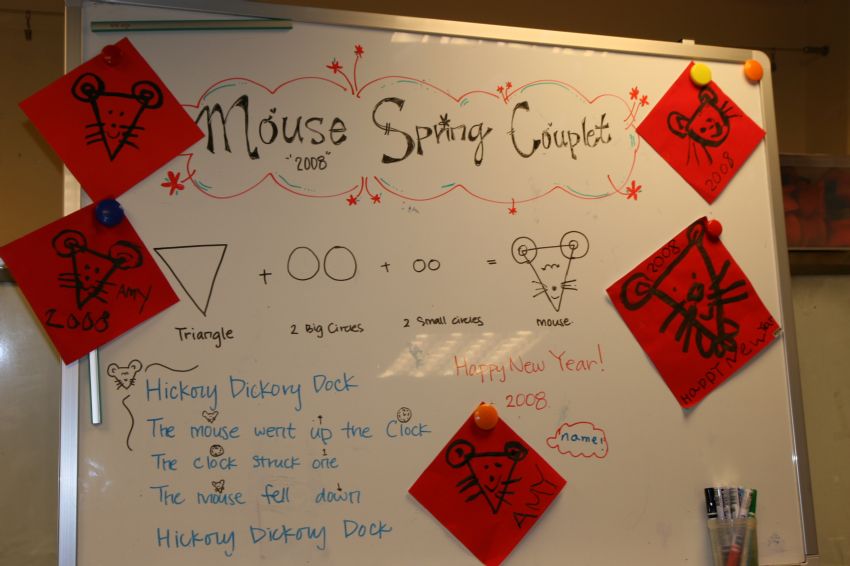 Mouse Spring Couplet
"2008"
Triangle + 2 Big Circles + 2 Small Circles = mouse
Happy New Year!
2008
Hickory Dickory Dock
The mouse went up the Clock
The clock struck one
1
The mouse fell down
Hickory Dickory Dock
name:
AMY
2008
2008
2008
HAPPY NEW YEAR
AMY